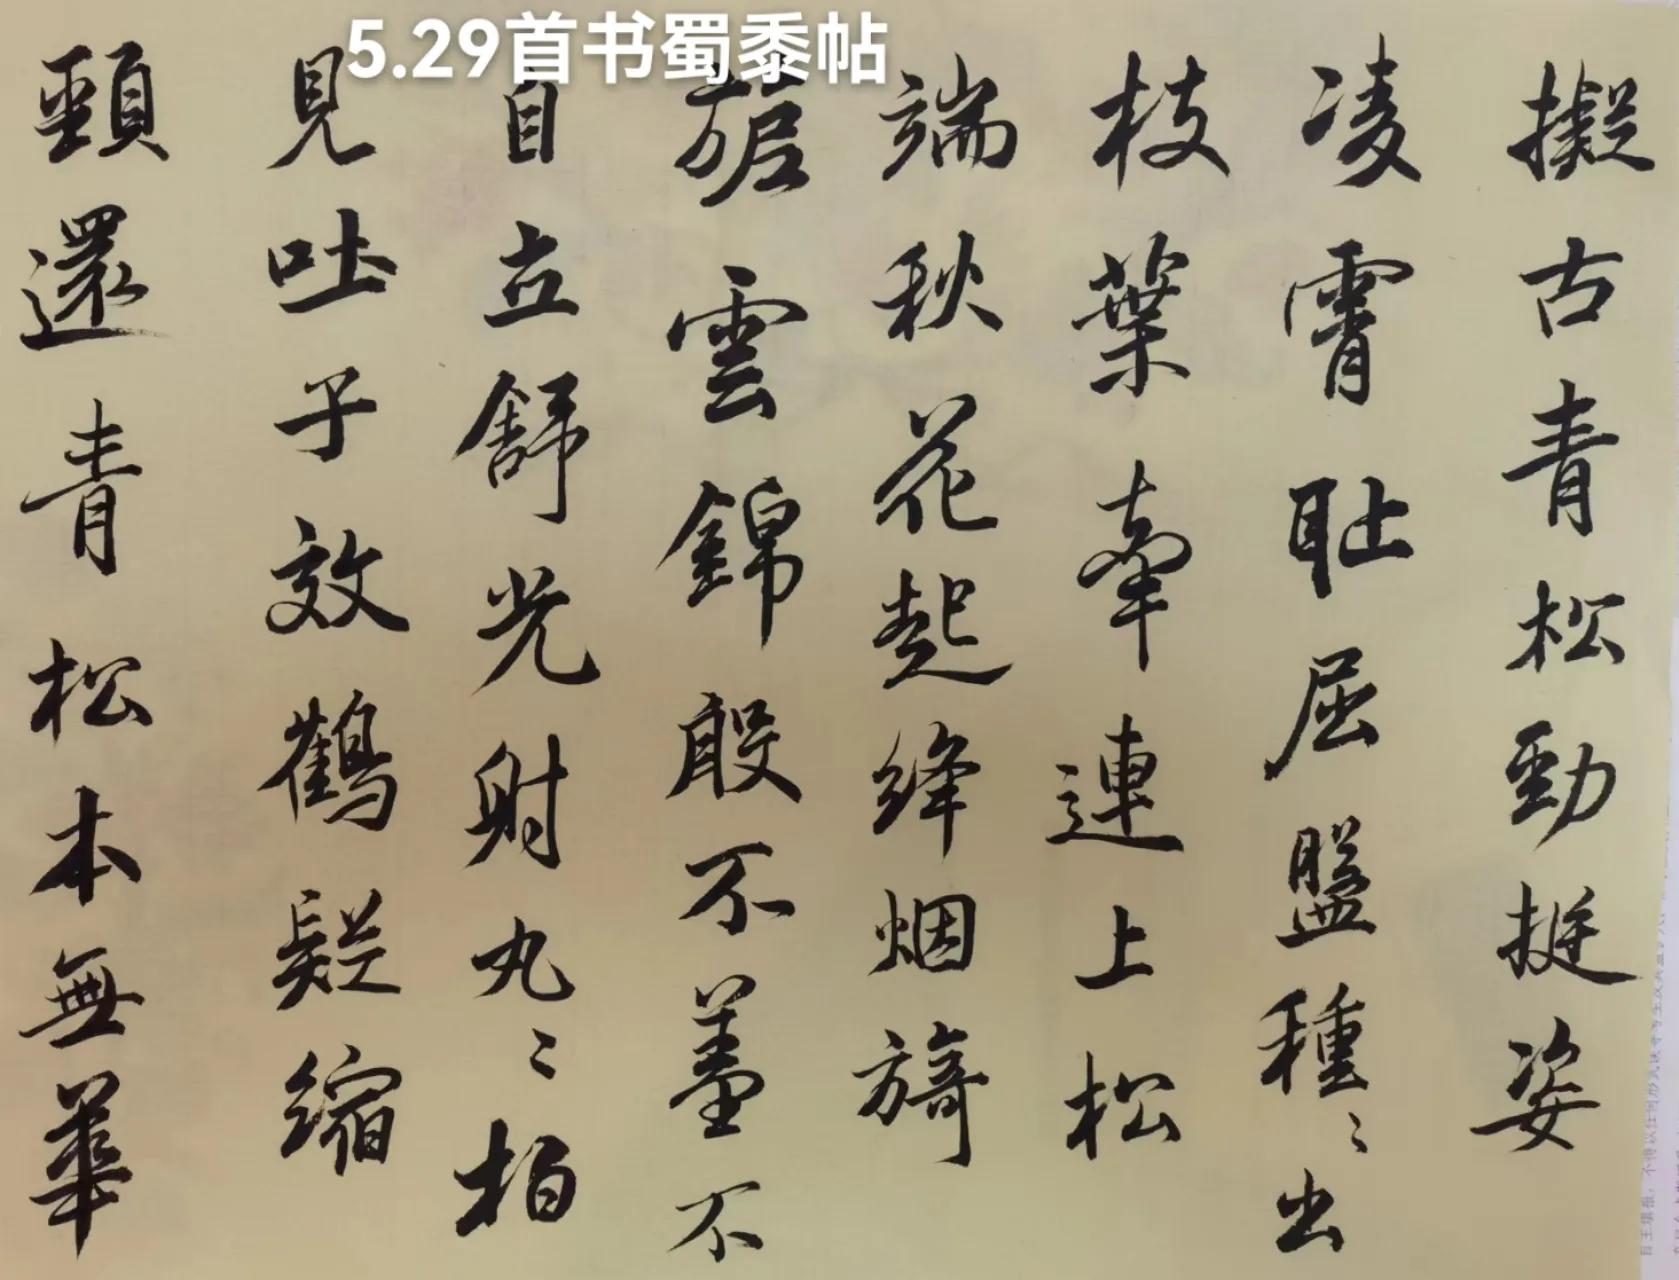 5.29首书蜀黍帖
擬古青松勁挺姿
凌霄耻屈盤種〻出
枝葉牽連上松
端秋花起絳烟旖
旎雲錦殷不羞不
自立舒光射丸〻柏
見吐子效鶴疑縮
頸還青松本無華